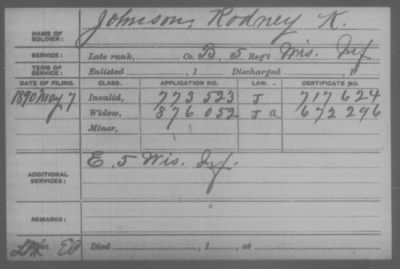 Johnson, Rodney K.
NAME OF SOLDIER:
SERVICE: Late rank, Co. B, 5 Reg't Wis. Inf.
TERM OF SERVICE: Enlisted , 1 Discharged , 1
DATE OF FILING. CLASS. APPLICATION NO. LAW. CERTIFICATE NO.
1890 May 7 Invalid, 773523 J 717624
Widow, 876052 J a 672296
Minor,
E. 5 Wis. Inf.
ADDITIONAL SERVICES:
REMARKS:
Died , 1 , at